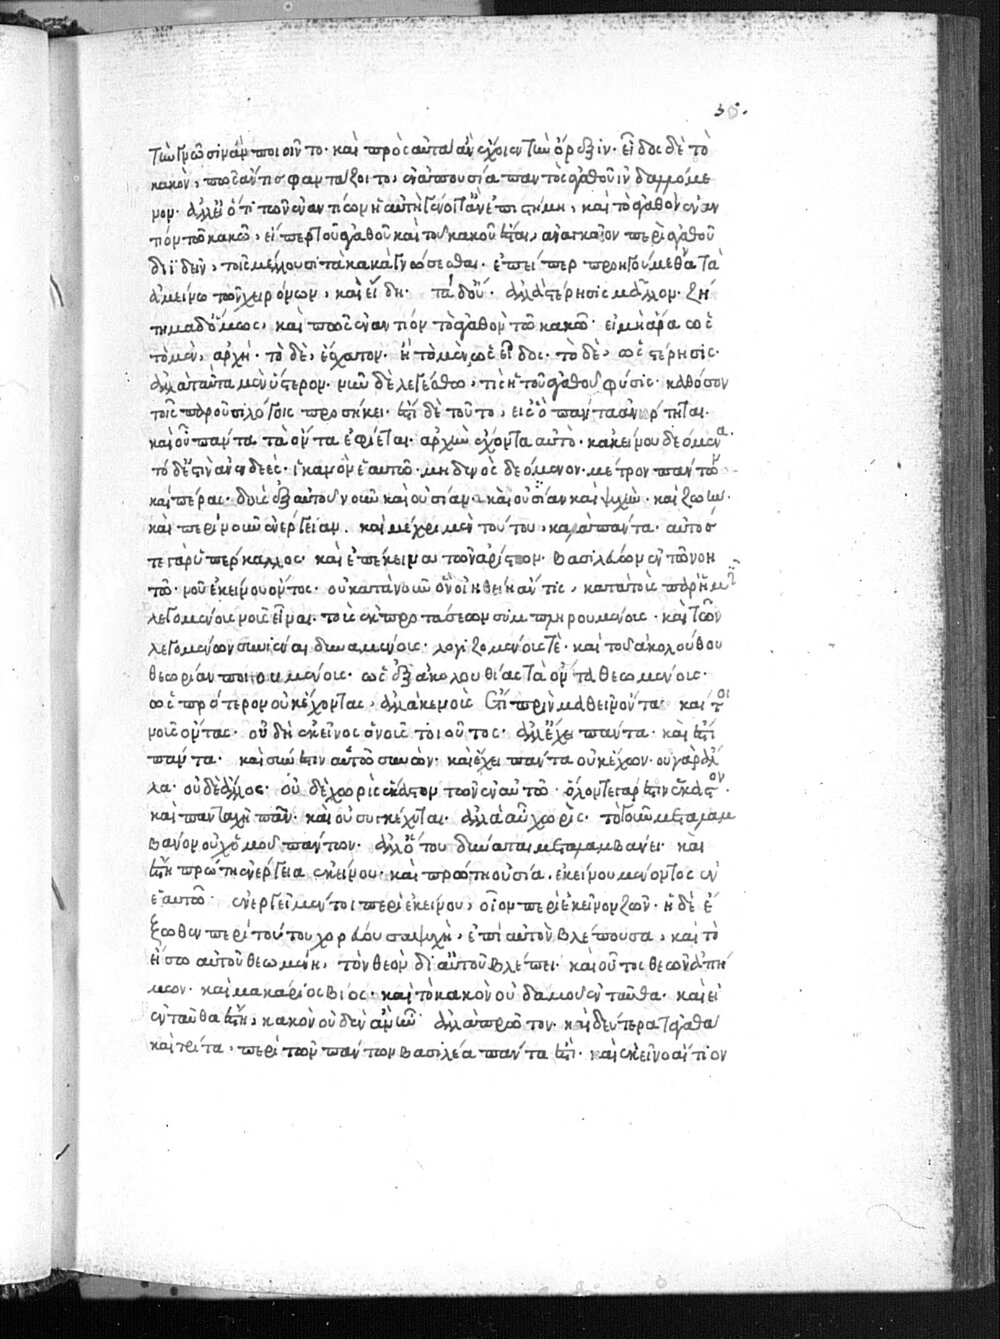 τὴν γνῶσιν ἂν ποιοῖντο· καὶ πρὸς αὐτὰ ἂν ἔχοιεν τὴν ὄρεξιν· εἶδος δὲ τὸ
κακὸν, πῶς ἄν τις φαντάζοιτο, ἐν ἀπουσίᾳ παντὸς ἀγαθοῦ ἰνδαλλόμε
νον· ἀλλ' εἰ ὅτι τῶν ἐναντίων ἡ αὐτὴ γένοιτ' ἂν ἐπιστήμη, καὶ τὸ ἀγαθὸν ἐναν
τίον τῷ κακῷ, εἴπερ τοῦ ἀγαθοῦ καὶ τοῦ κακοῦ ἔσται, ἀναγκαῖον περὶ ἀγαθοῦ
διϊδεῖν, τοῖς μέλλουσι τὰ κακὰ γνώσεσθαι· ἐπείπερ προηγούμενα τὰ
ἀμείνω τῶν χειρόνων, καὶ εἴδη· τὰ δ' οὔ· ἀλλὰ στέρησις μᾶλλον· ζή
τημα δ' ὅμως, καὶ πῶς ἐναντίον τὸ ἀγαθὸν τῷ κακῷ· εἰ μὴ ἄρα ὡς
τὸ μὲν, ἀρχή· τὸ δὲ, ἔσχατον· ἢ τὸ μὲν ὡς εἶδος· τὸ δὲ, ὡς στέρησις·
ἀλλὰ ταῦτα μὲν ὕστερον· νῦν δὲ λεγέσθω, τίς ἡ τοῦ ἀγαθοῦ φύσις· καθόσον
τοῖς παροῦσι λόγοις προσήκει· ἔστι δὲ τοῦτο, εἰς ὃ πάντα ἀνήρτηται·
καὶ οὗ πάντα τὰ ὄντα ἐφίεται· ἀρχὴν ἔχοντα αὐτὸ· κἀκείνου δεόμενα·
τὸ δ' ἔστιν ἀνενδεές· ἱκανὸν ἑαυτῷ· μηδενὸς δεόμενον· μέτρον πάντων
καὶ πέρας· δοὺς ἐξ αὐτοῦ νοῦν καὶ οὐσίαν· καὶ οὐσίαν καὶ ψυχὴν· καὶ ζωὴν·
καὶ περὶ νοῦν ἐνέργειαν. καὶ μέχρι μὲν τούτου, καλὰ πάντα· αὐτός
τε γὰρ ὑπέρκαλος· καὶ ἐπέκεινα τῶν ἀρίστων· βασιλεύων ἐν τῷ νοη
τῷ· νοῦ ἐκείνου ὄντος· οὐ κατὰ νοῦν ὃν οἰηθείη ἄν τις, κατὰ τοὺς παρ' ἡμῖν
λεγομένους νοῦς εἶναι· τοὺς ἐκ προτάσεων συμπληρουμένους· καὶ τῶν
λεγομένων συνιέναι δυναμένους· λογιζομένους τὲ· καὶ τοῦ ἀκολούθου
θεωρίαν ποιουμένους· ὡς ἐξ ἀκολουθίας τὰ ὄντα θεωμένους·
ὡς πρότερον οὐκ ἔχοντας, ἀλλὰ κενοὺς ἔτι πρὶν μαθεῖν ὄντα· καί τοι
νοῦς ὄντας· οὐ δὴ ἐκεῖνος ὁ νοῦς τοιοῦτος· ἀλλ' ἔχει πάντα· καὶ ἔστι
πάντα· καὶ σύνεστιν αὐτῷ συνὼν· καὶ ἔχει πάντα οὐκ ἔχων· οὐ γὰρ ἄλ
λα· ὁ δὲ ἄλλος· οὐ δὲ χωρὶς ἕκαστον τῶν ἐν αὐτῷ· ὅλον τε γάρ ἐστιν ἕκαστον·
καὶ πανταχῇ πᾶν· καὶ οὐ συγκέχυται· ἀλλὰ αὖ χωρίς· τὸ γοῦν μεταλαμ
βάνον οὐχ ὁμοῦ πάντων· ἀλλ' ὅτου δύναται μεταλαμβάνει· καὶ
ἔστι πρώτη ἐνέργεια ἐκείνου· καὶ πρώτη οὐσία, ἐκείνου μένοντος ἐν
ἑαυτῷ· ἐνεργεῖ μέντοι περὶ ἐκεῖνον, οἷον περὶ ἐκεῖνον ζῶν· ἡ δὲ ἔ
ξωθεν περὶ τοῦτον χορεύουσα ψυχὴ, ἐπὶ αὐτὸν βλέπουσα, καὶ τὸ
εἴσω αὐτοῦ θεωμένη, τὸν θεὸν δι' αὐτοῦ βλέπει· καὶ οὗτος θεῶν ἀπή
μων· καὶ μακάριος βίος· καὶ τὸ κακὸν οὐδαμοῦ ἐνταῦθα· καὶ εἰ
ἐνταῦθα ἔστη, κακὸν οὐδὲν ἂν ἦν· ἀλλὰ πρῶτον· καὶ δεύτερα τἀγαθὰ
καὶ τρίτα, περὶ τῶν πάντων βασιλέα πάντα ἐστί· καὶ ἐκεῖνο αἴτιον